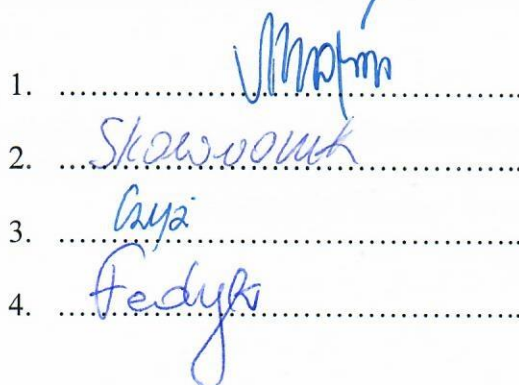 1. ..........................................
2. Skowronek
3. Czyż
4. Fedyk